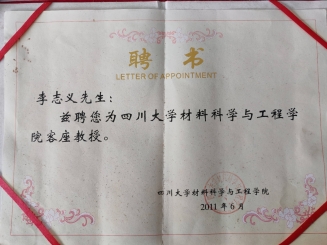 聘书
LETTER OF APPOINTMENT
李志义先生：
兹聘您为四川大学材料科学与工程学
院客座教授。
四川大学材料科学与工程学院
2011年6月